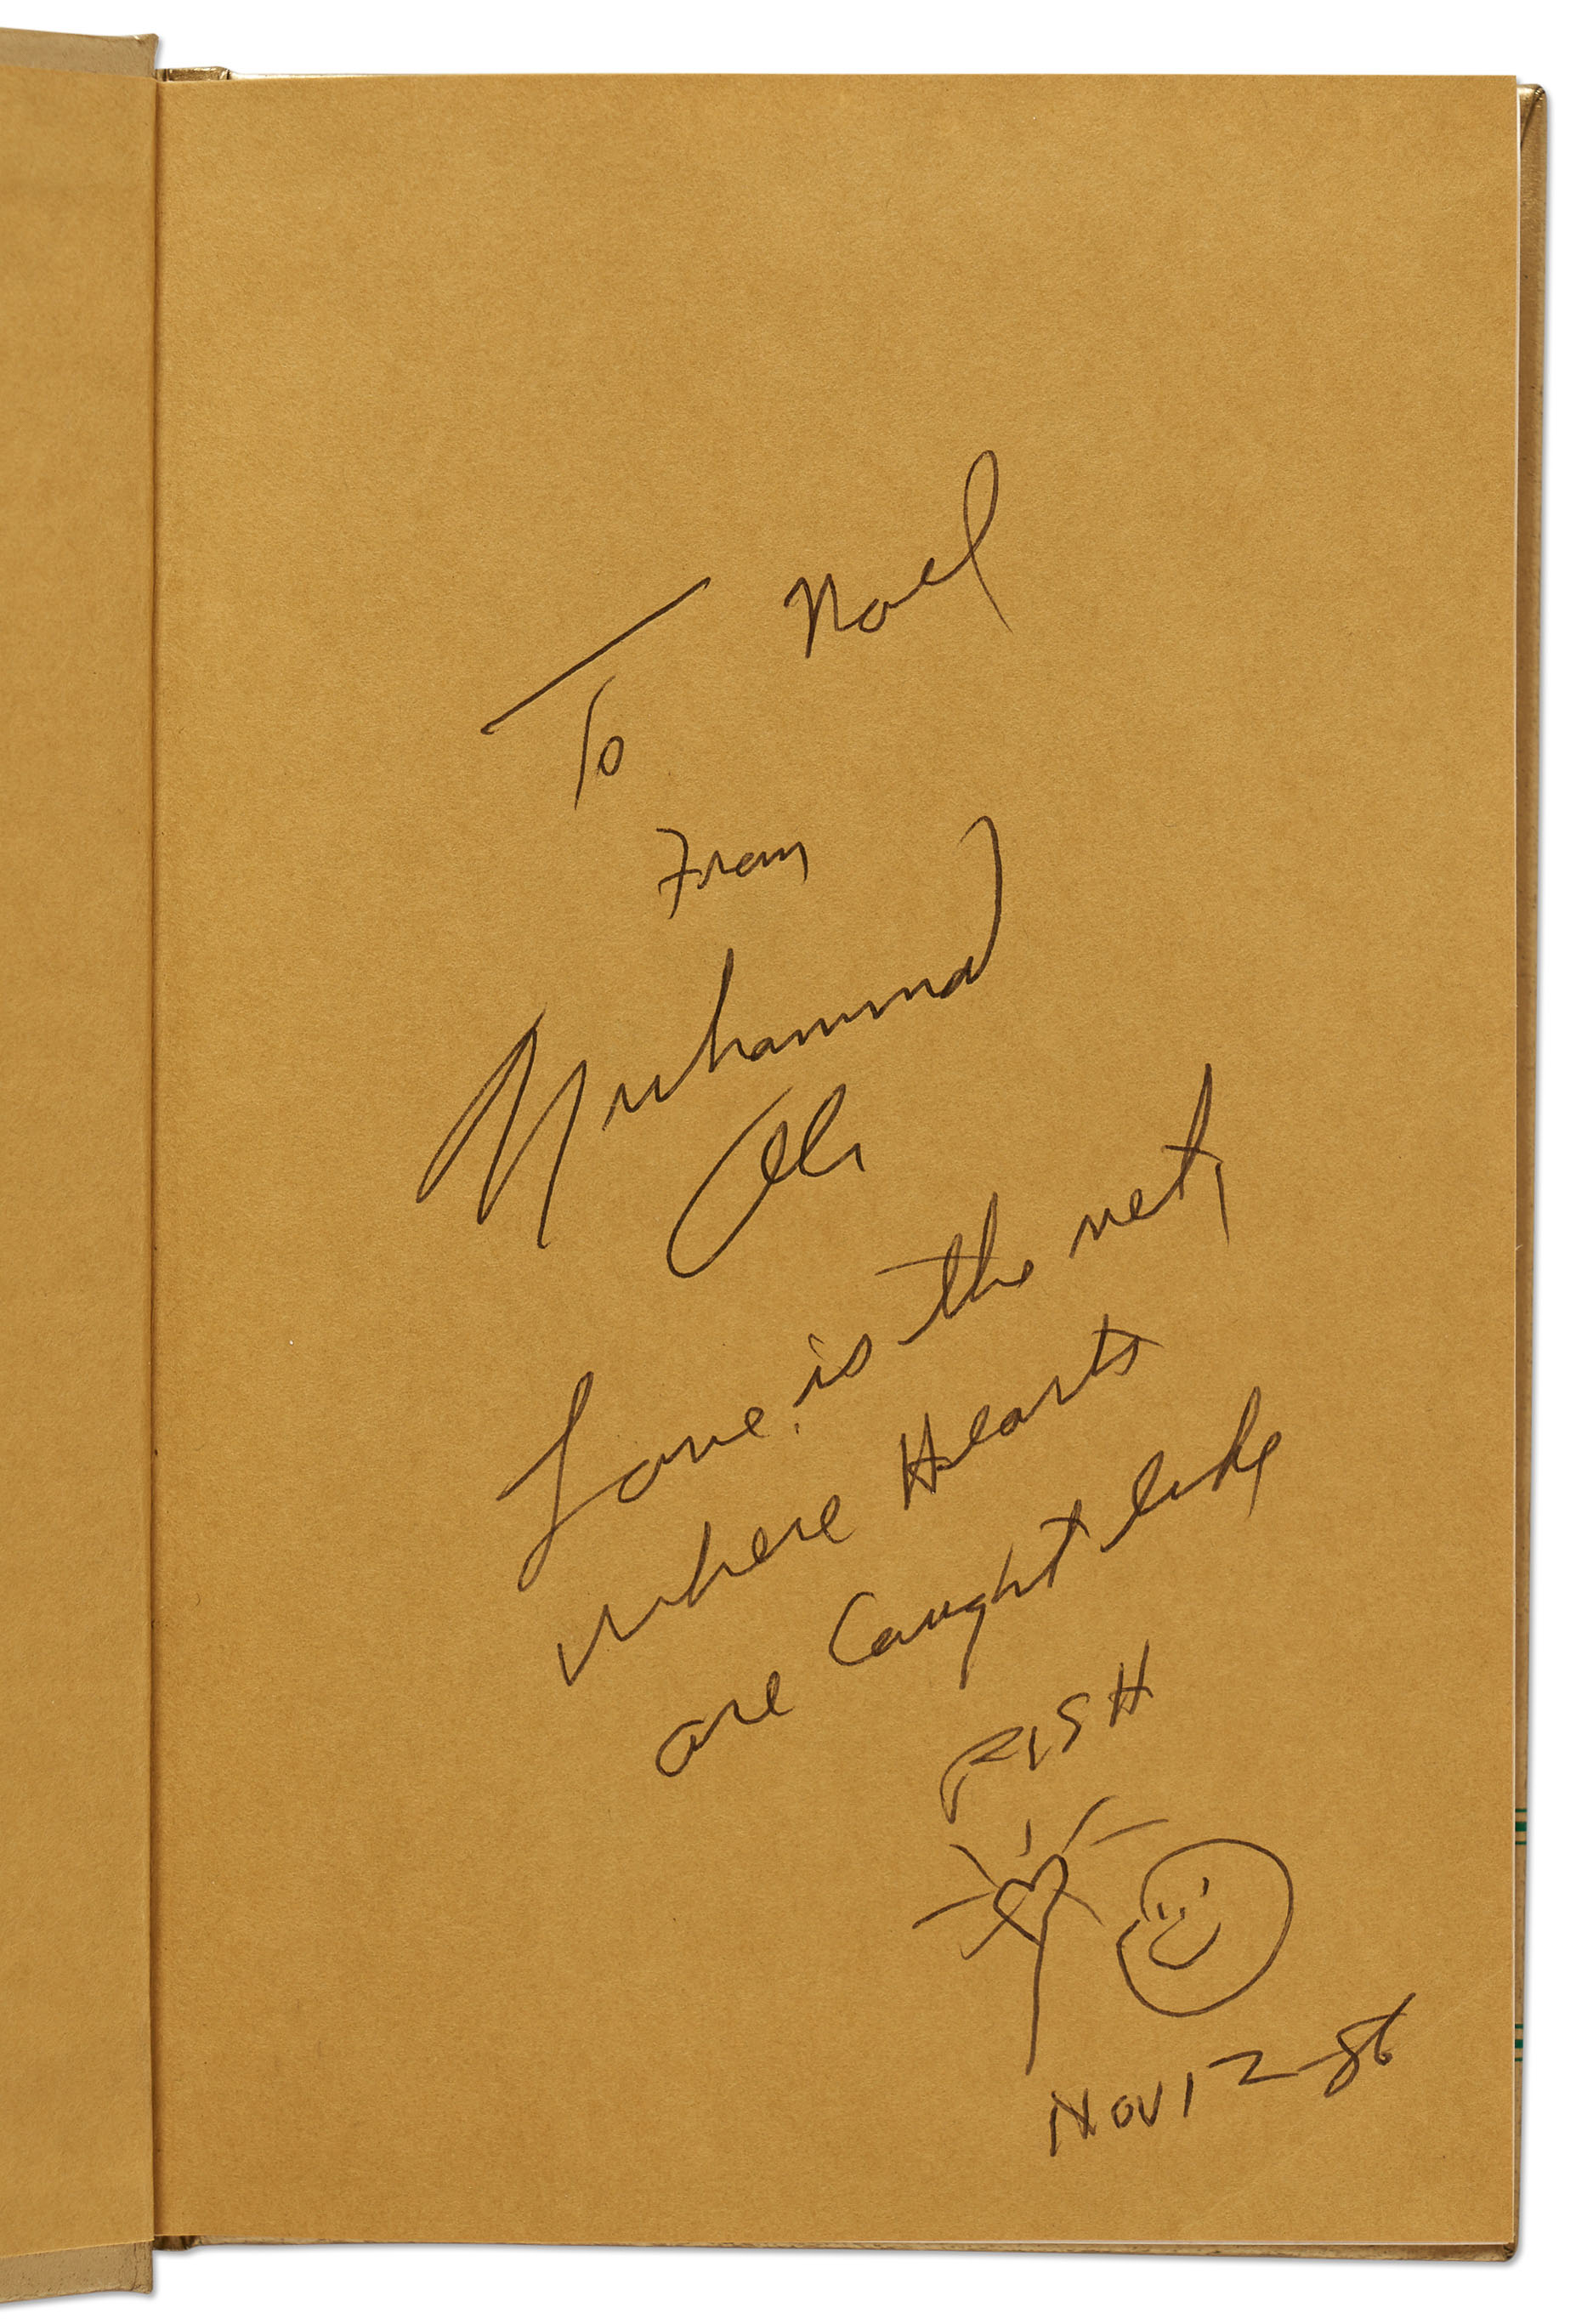 To Noel
From
Muhammad
Ali
Love is the net,
where Hearts
are Caught like
FISH
NOV 12-86